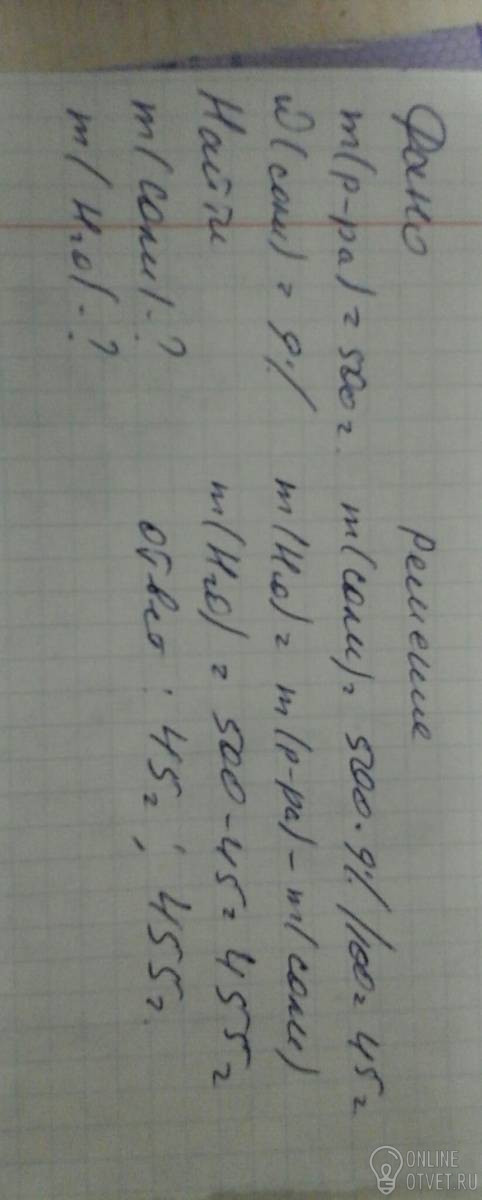 Дано
Решение
m(р-ра) = 500 г.
m(соли) = 500 · 9% / 100 = 45 г.
ω(соли) = 9%
m(H2O) = m(р-ра) - m(соли)
Найти
m(H2O) = 500 - 45 = 455 г
m(соли) - ?
ответ: 45 г; 455 г.
m(H2O) - ?
ONLINE
OTVET.RU